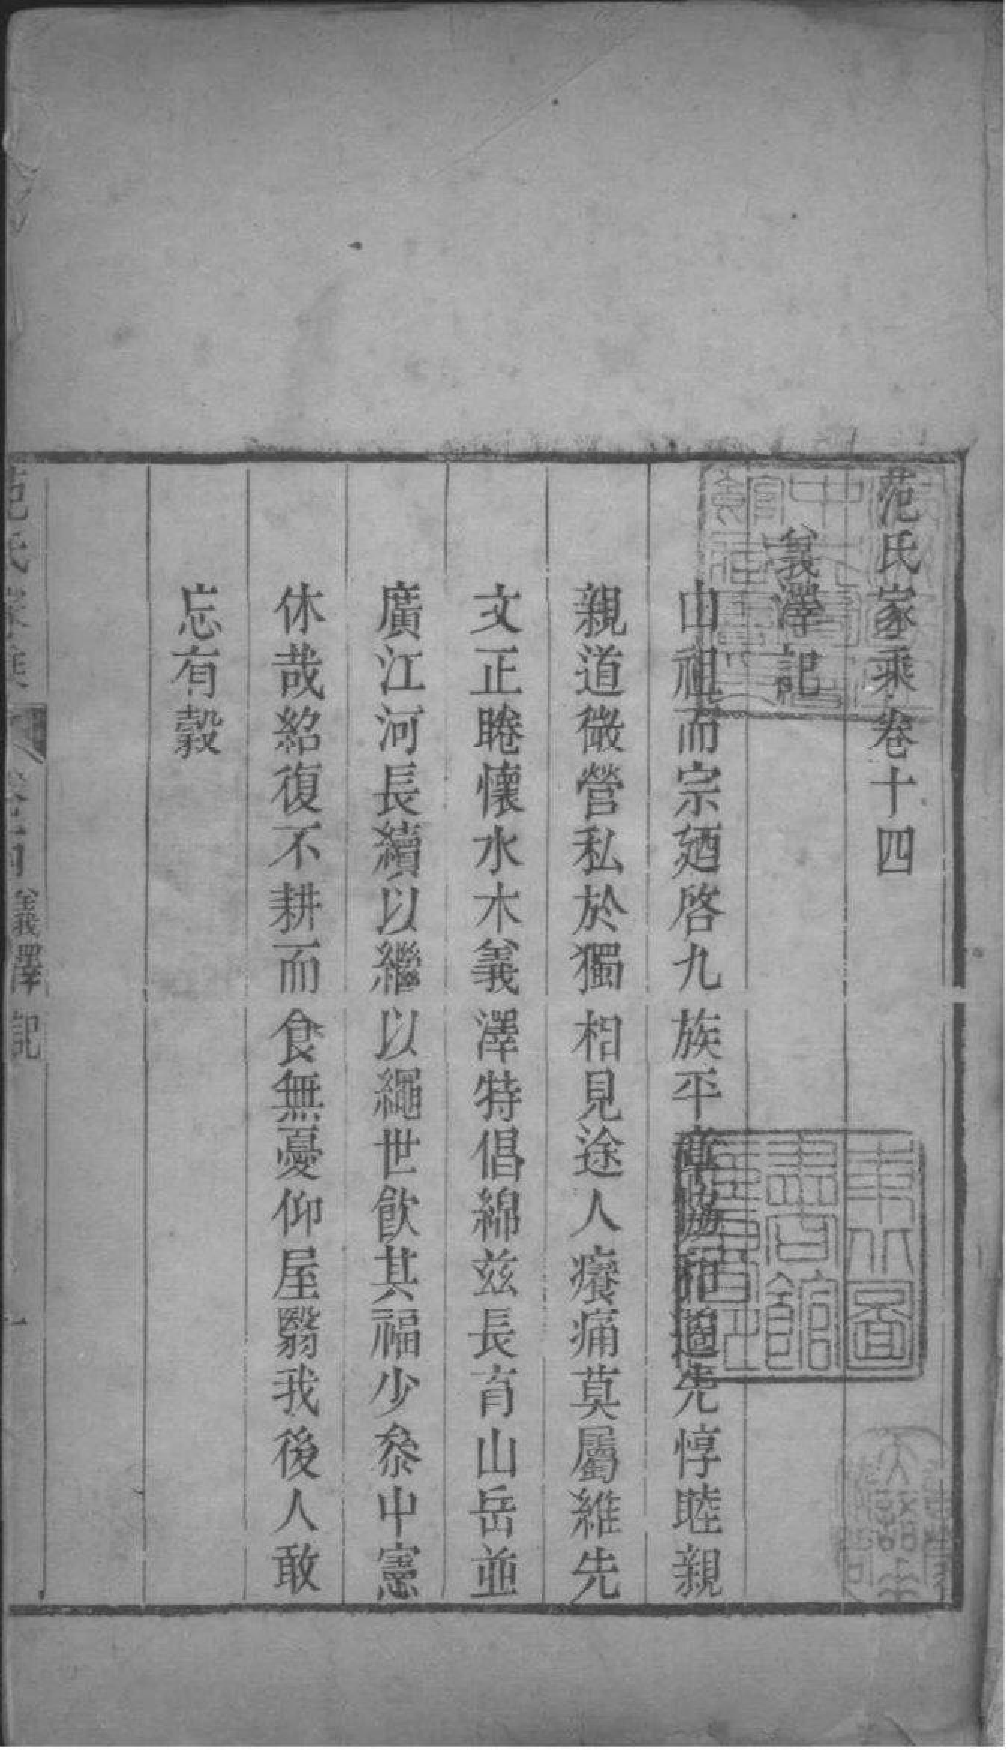 范氏家乘卷十四
義澤記
由祖而宗廼啓九族平章協和道先惇睦親
親道微營私於獨相見途人癢痛莫屬維先
文正睠懷水木義澤特倡綿兹長育山岳並
廣江河長續以繼以繩世飲其福少叅中憲
休哉紹復不耕而食無憂仰屋翳我後人敢
忘有穀
范氏家乘
卷十四
義澤記
一